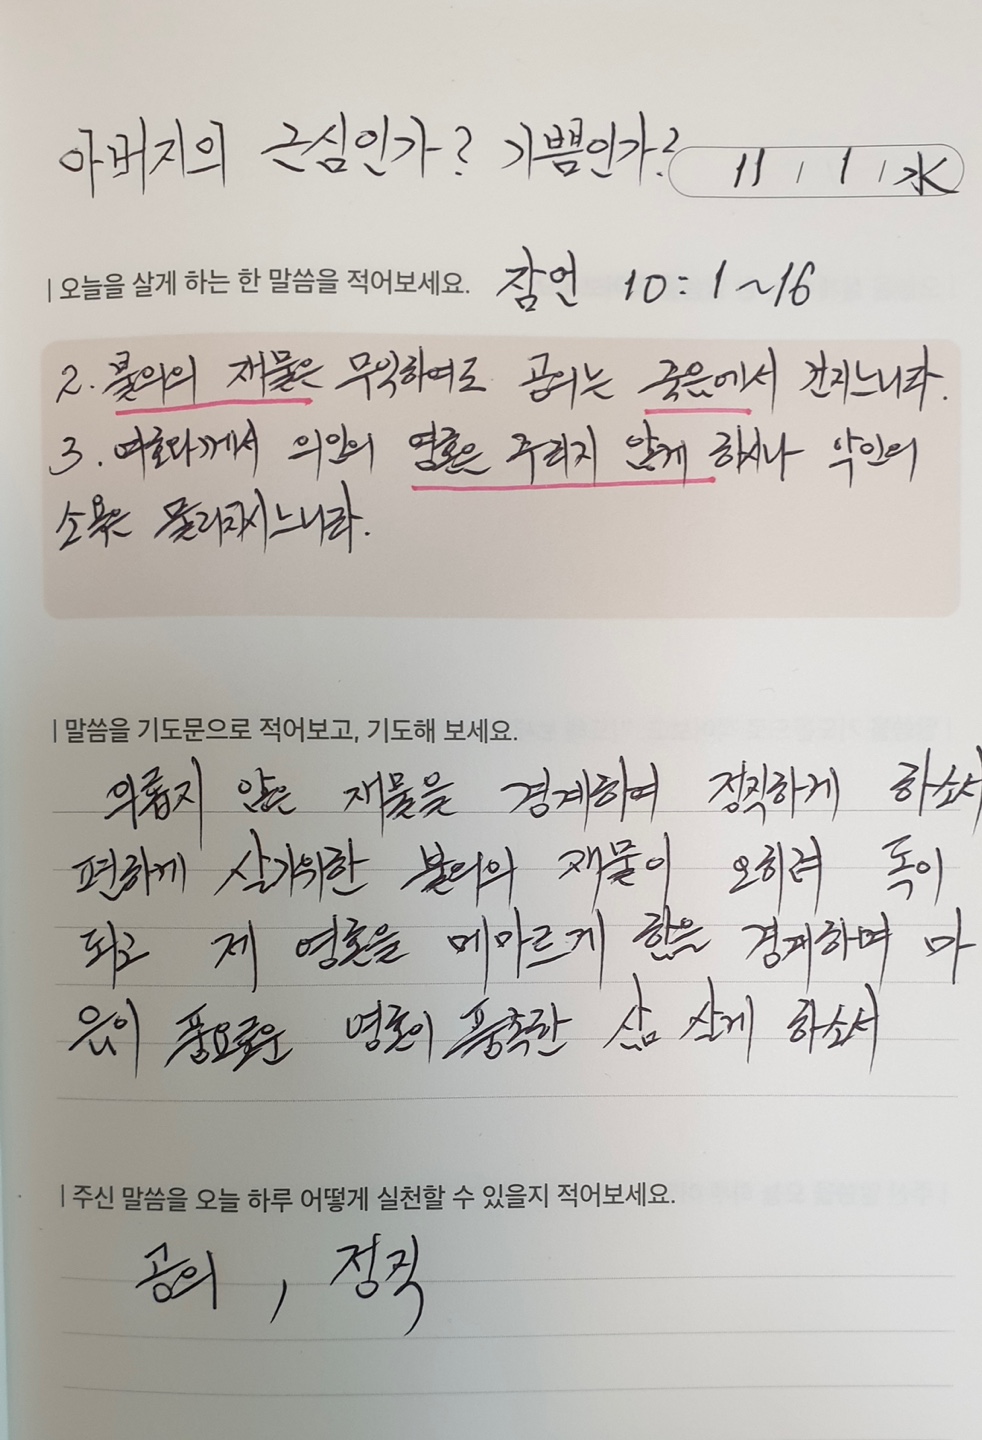 아버지의 근심인가? 기쁨인가?
11 / 1 / 水
| 오늘을 살게 하는 한 말씀을 적어보세요. 잠언 10:1~16
2. 불의의 재물은 무익하여도 공의는 죽음에서 건지느니라.
3. 여호와께서 의인의 영혼은 주리지 않게 하시나 악인의
소욕은 물리치시느니라.
| 말씀을 기도문으로 적어보고, 기도해 보세요.
의롭지 않은 재물을 경계하며 정직하게 하소서
편하게 살기위한 불의의 재물이 오히려 독이
되고 제 영혼을 메마르게 함을 경계하며 마
음이 풍요로운 영혼이 풍족한 삶 살게 하소서
| 주신 말씀을 오늘 하루 어떻게 실천할 수 있을지 적어보세요.
공의 , 정직